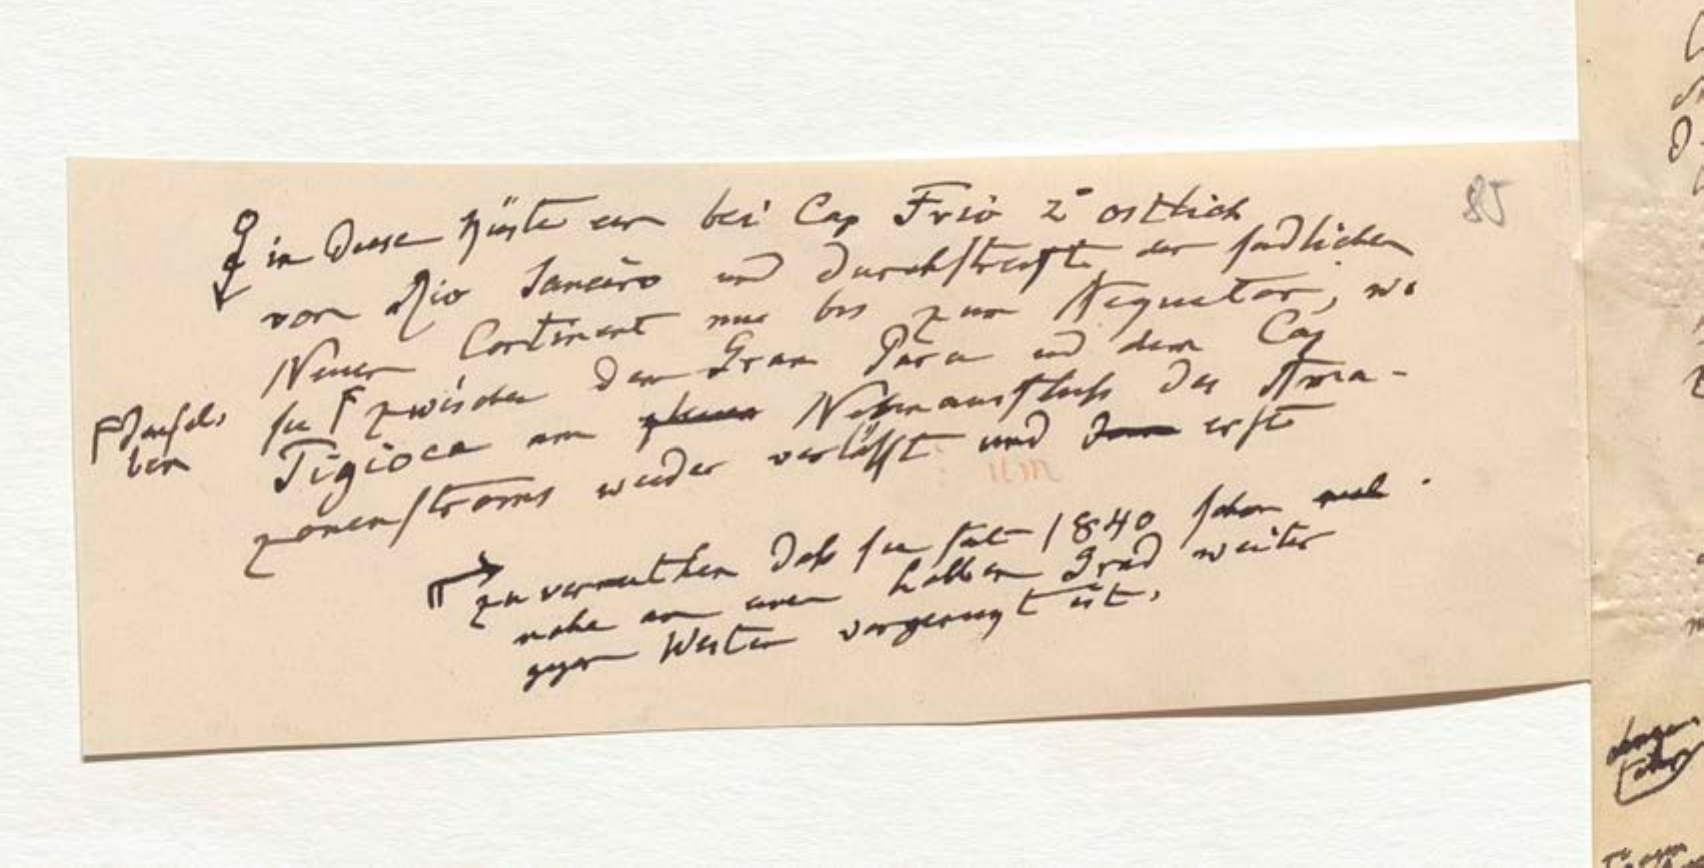 85
in diese Küste ein bei Cap Frio 2° östlich
von Rio Janeiro und durchstreift den südlichen
Neuen Continent nur bis zum Aequator, wo
sie zwischen dem Gran Para und dem Cap
denselben
Tigioca am Nebenausfluss des Ama-
zonenstroms wieder verlässt und erst
zu vermuthen dass sie seit 1840 schon
nahe an einen halben Grad weiter
gegen Westen vorgerückt ist.